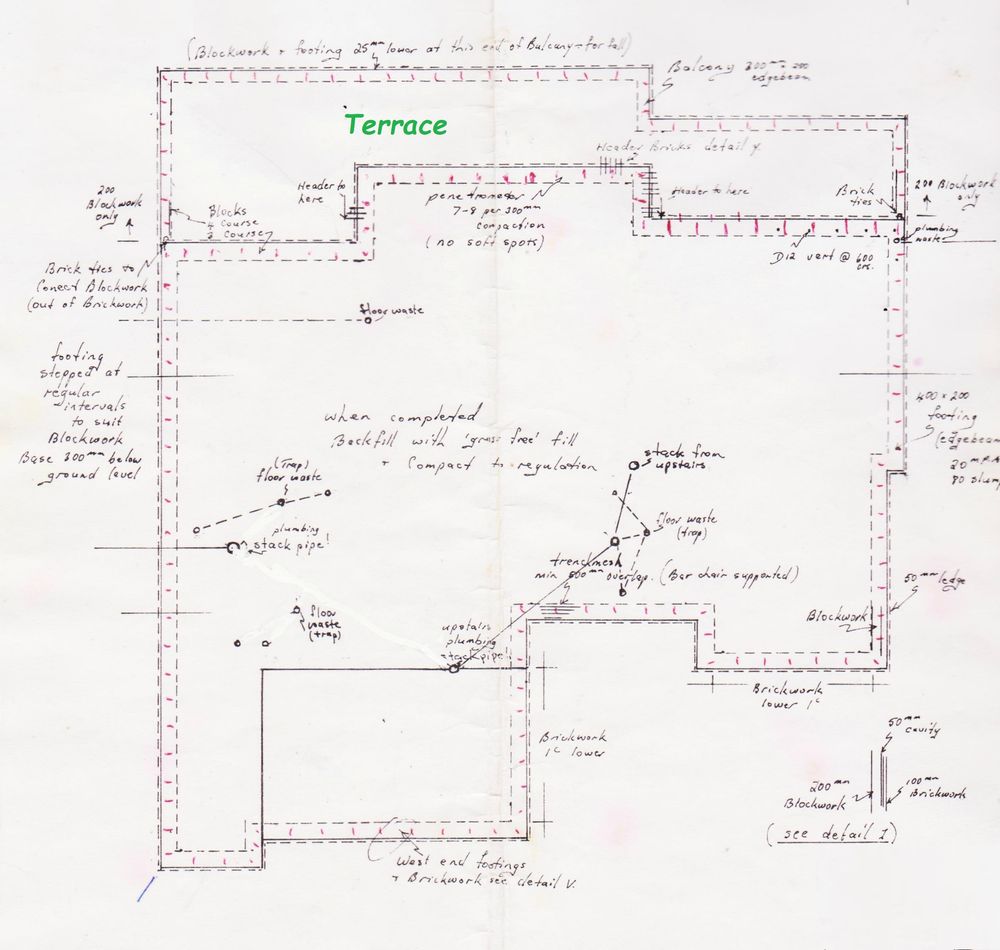 (Blockwork + footing 25mm lower at this end of Balcony for fall)
Balcony 300mm x 200
edgebeam
Terrace
Header Bricks detail
Header to
here
penetrometer
7-8 per 300mm
compaction
(no soft spots)
Header to here
Brick
ties
200 Blockwork
only
200
Blockwork
only
Blocks
4 Course
3 Course
plumbing
waste
D12 vert @ 600
crs.
Brick ties to
Conect Blockwork
(out of Brickwork)
floor waste
footing
stepped at
regular
intervals
to suit
Blockwork
Base 300mm below
ground level
400 x 200
footing
(edgebeam
20 MPA
80 slump
when completed
Backfill with 'grass free' fill
+ Compact to regulation
stack from
upstairs
(Trap)
floor waste
floor waste
(trap)
plumbing
stack pipe!
trenchmesh
min 600mm overlap. (Bar chair supported)
50mm ledge
floor
waste
(trap)
Blockwork
upstairs
plumbing
stack pipe!
Brickwork
lower 1c
Brickwork
1c lower
50mm
cavity
200mm
Blockwork
100mm
Brickwork
(see detail 1)
West end footings
+ Brickwork see detail V.